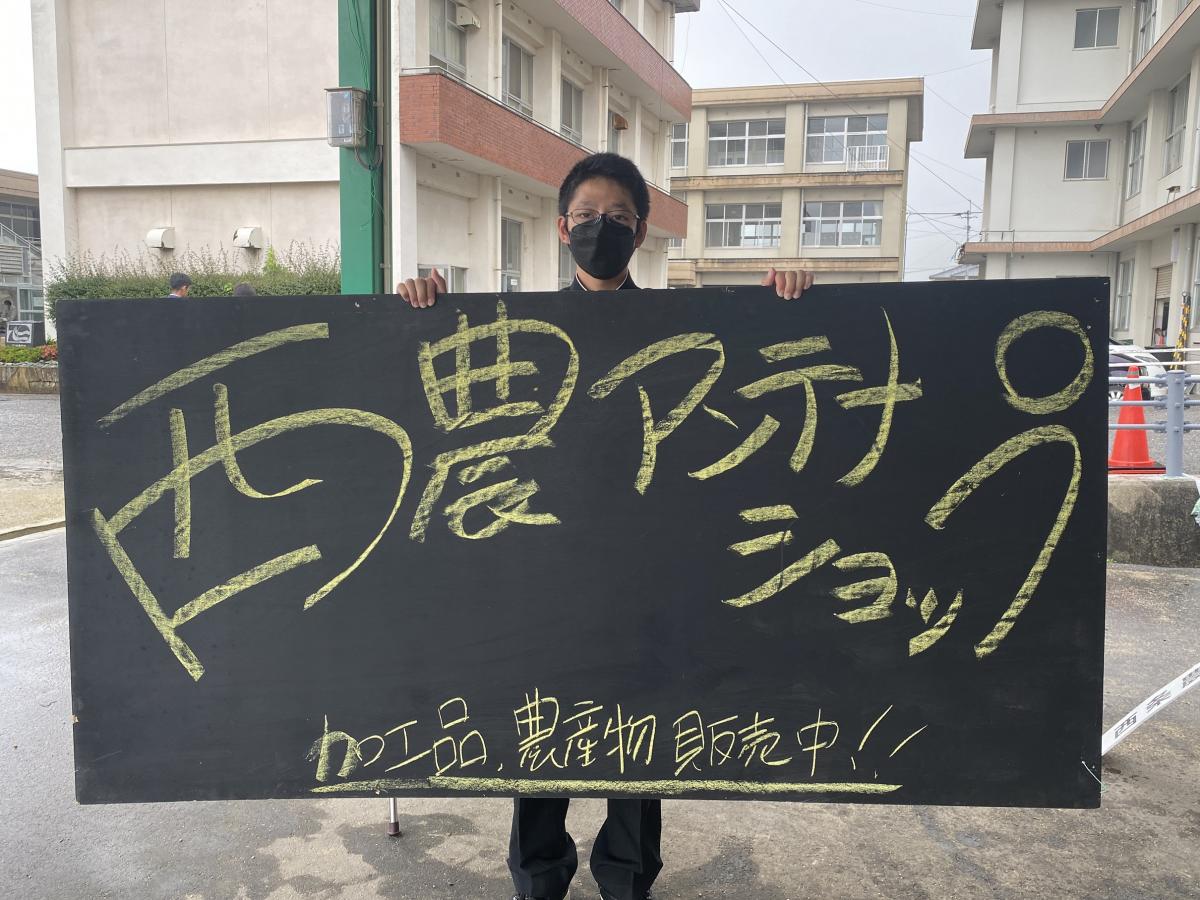 西農アンテナ
ショップ
加工品、農産物販売中!!
西条農